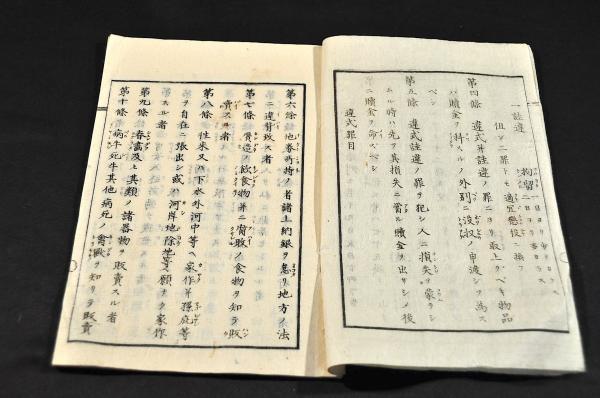 一詿違 拘留
但シ二罪トモ適宜懲役ニ換フ
第四條 違式並詿違ノ罪ニヨリ取上クベキ物品
ハ贖金ヲ科スルノ外別ニ没収ノ申渡シヲ為ス
ベシ
第五條 違式詿違ノ罪ヲ犯シ人ニ損失ヲ蒙ラシ
ムル時ハ先ヅ其損失ニ當ル贖金ヲ出サシメ後
ニ贖金ヲ命スベシ
違式罪目
第六條 地券所持ノ者諸上納銀ヲ怠リ地方ノ法
ニ違背致ス者
第七條 贋造ノ飲食物並ニ腐敗ノ食物ヲ知テ販
賣スル者
第八條 往来又ハ下水外河中等ヘ家作並孫庇等
ヲ自在ニ張出シ或ハ河岸地除地等ヘ願ナク家作
スル者
第九條 春畫及ヒ其類ノ諸器物ヲ販賣スル者
第十條 病牛死牛其他病死ノ禽獣ヲ知リテ販賣